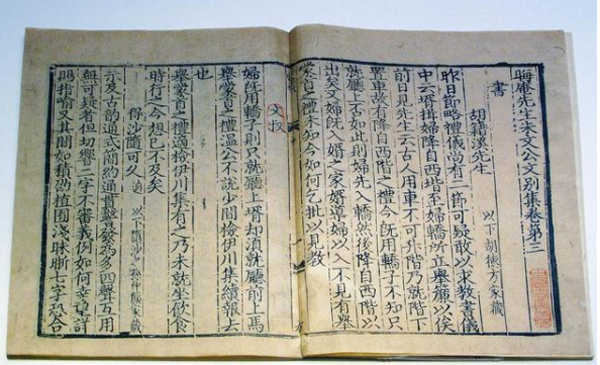 晦庵先生朱文公文別集卷第三
書
胡籍溪先生 以下胡德方家藏
昨日節略禮儀尚有二節可疑敢以求教書儀
中云壻揖婦降自西階至婦轎所立舉簾以俟
前日見先生云古人用車不可升階乃就階下
置車故有降自西階之禮今既用轎子不知只
就廳上否如此則婦先入轎然後降自西階以
出矣又婦既入壻之家壻導婦以入不見有舉
蒙首之禮未知今如何乞批以見教
婦既用轎子則只就廳上壻却須就廳前上馬
舉蒙首之禮溫公不說少間檢伊川集續報去
也
舉蒙首之禮適檢伊川集有之乃未就坐飲食
時行之今想已不及矣
得沙隨可久
示及古韻通式簡約通貫警發為多四聲互用
無可疑者但切響二字不審義例如何幸望詳
賜指喻又其間如積勢植固淺昧斷十字發合